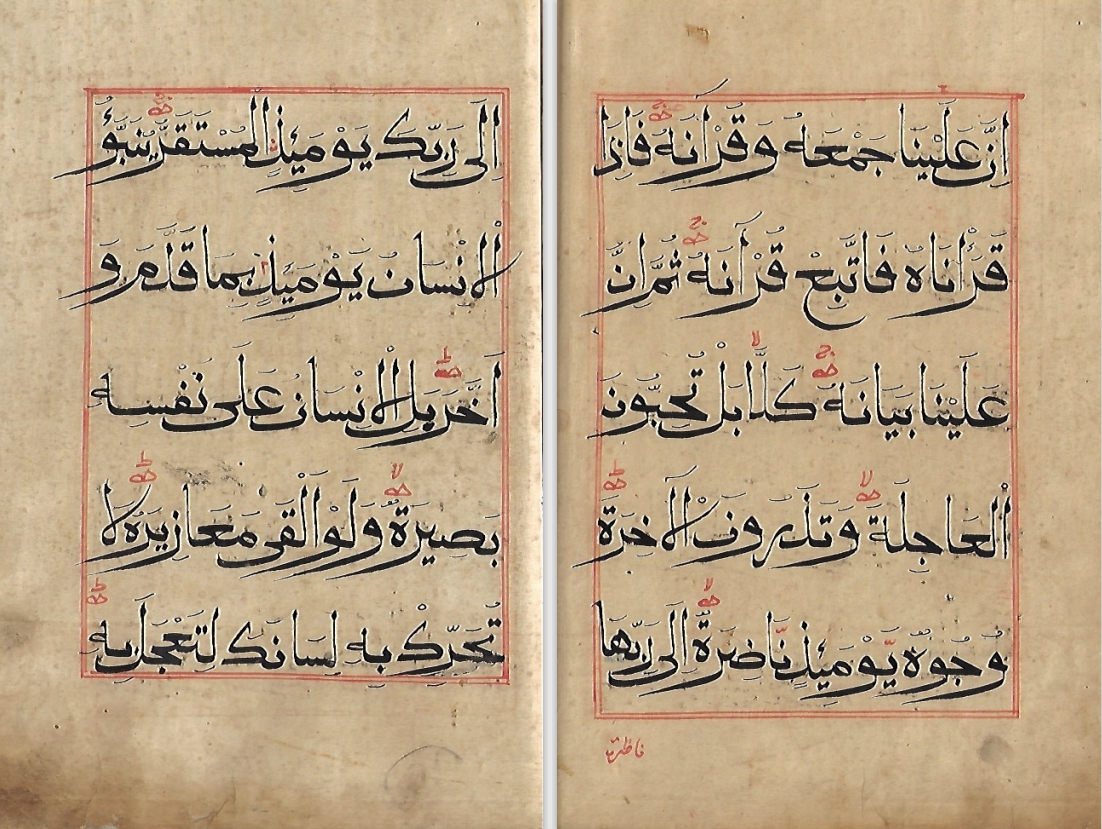 اِلٰى رَبِّكَ يَوْمَئِذٍ الْمُسْتَقَرُّ يُنَبَّؤُ
الْاِنْسَانُ يَوْمَئِذٍ بِمَا قَدَّمَ وَ
اَخَّرَ بَلِ الْاِنْسَانُ عَلٰى نَفْسِهٖ
بَصِيرَةٌ وَلَوْ اَلْقٰى مَعَازِيرَهُ لَا
تُحَرِّكْ بِهٖ لِسَانَكَ لِتَعْجَلَ بِهٖ
اِنَّ عَلَيْنَا جَمْعَهُ وَقُرْاٰنَهُ فَاِذَا
قَرَأْنَاهُ فَاتَّبِعْ قُرْاٰنَهُ ثُمَّ اِنَّ
عَلَيْنَا بَيَانَهُ كَلَّا بَلْ تُحِبُّونَ
الْعَاجِلَةَ وَتَذَرُونَ الْاٰخِرَةَ
وُجُوهٌ يَّوْمَئِذٍ نَّاضِرَةٌ اِلٰى رَبِّهَا
ناظرة